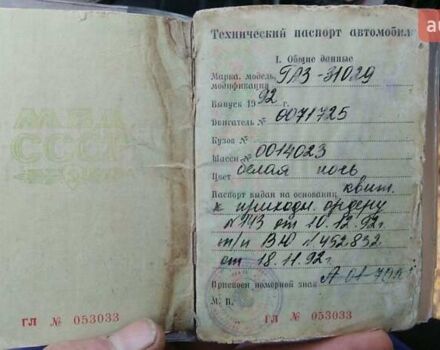 СССР
ГЛ № 053033
Технический паспорт автомобил
I. Общие данные
Марка, модель, ГАЗ-31029
модификация
Выпуск 1992 г.
Двигатель № 0071725
Кузов №
Шасси № 0014023
Цвет белая ночь
Паспорт выдан на основании квит.
к приходн. ордеру
№143 от 10.12.92г
т/п ВЮ №452832
от 18.11.92г
Присвоен номерной знак
М. П.
ГЛ № 053033